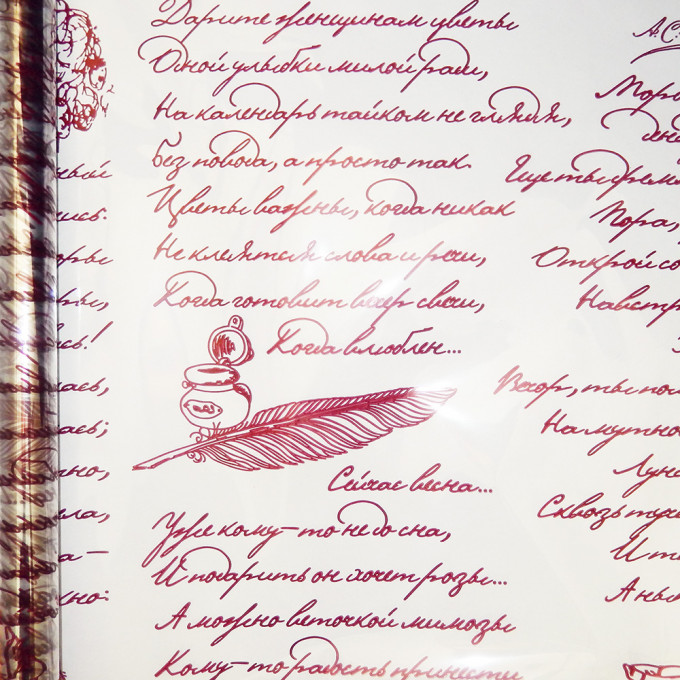 Дарите женщинам цветы
Одной улыбки милой ради,
На календарь тайком не глядя,
Без повода, а просто так.
Цветы важны, когда никак
Не клеятся слова и речи,
Когда готовит вечер свечи,
Когда влюблен...
Сейчас весна...
Уже кому-то не до сна,
И подарить он хочет розы...
А можно веточкой мимозы
Кому-то радость принести
А.С.
Моро
Еще ты дремл
Пора,
Открой со
Навстр
Вечор, ты пом
На мутно
Луна
Сквозь туч
И т
А ны